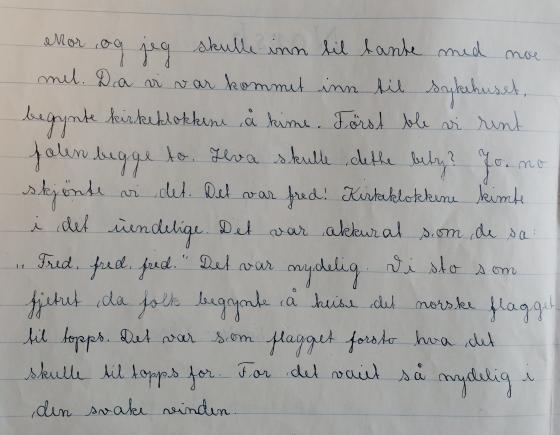 Mor og jeg skulle inn til tante med noe
mel. Da vi var kommet inn til sykehuset,
begynte kirkeklokkene å kime. Först ble vi rent
fælen begge to. Hva skulle dette bety? Jo. nå
skjönte vi det. Det var fred! Kirkeklokkene kimte
i det uendelige. Det var akkurat som de sa:
„Fred, fred, fred." Det var nydelig. Vi sto som
fjetret da folk begynte å heise det norske flagget
til topps. Det var som flagget forsto hva det
skulle til topps for. For det vaiet så nydelig i
den svake vinden.